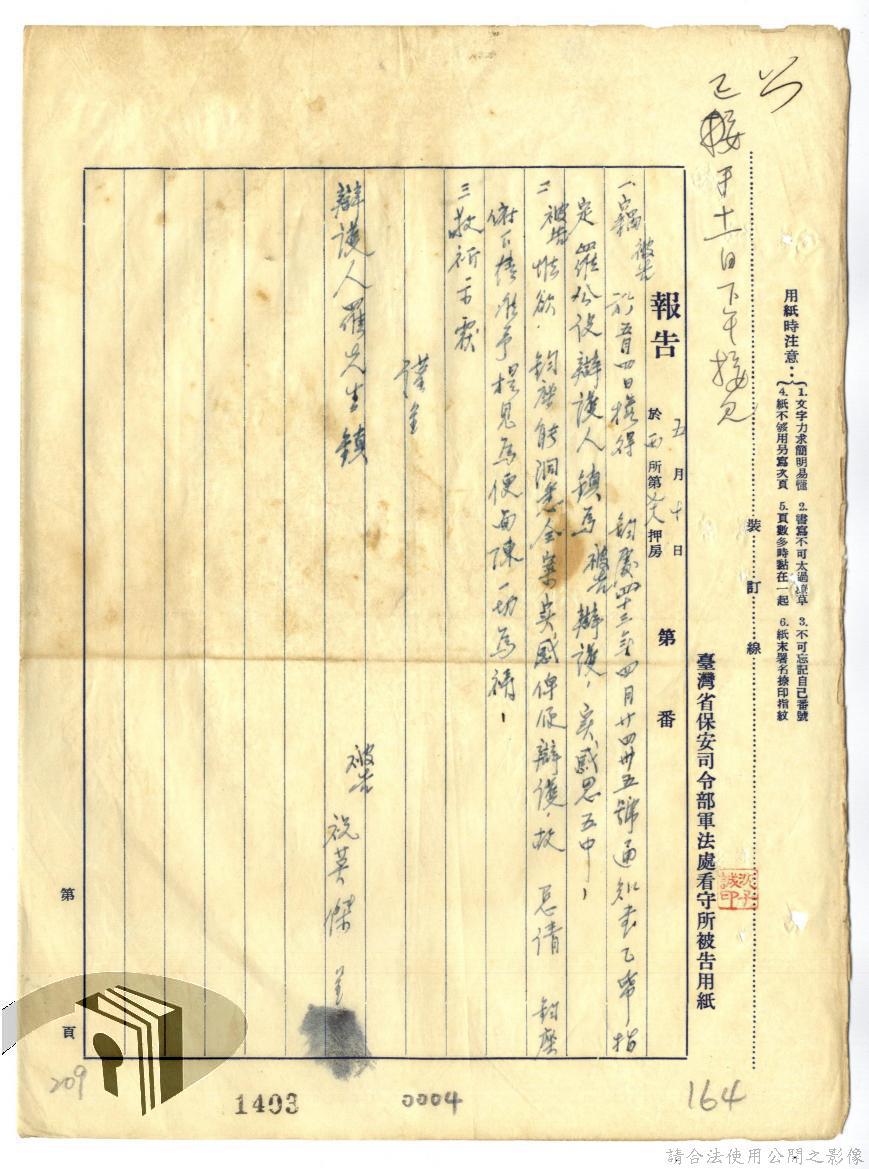 已接 手 十一日下午接見
用紙時注意：
1.文字力求簡明易懂 2.書寫不可太過潦草 3.不可忘記自己番號
4.紙不够用另寫次頁 5.頁數多時黏在一起 6.紙末署名捺印指紋
裝 訂 線
臺灣省保安司令部軍法處看守所被告用紙
報告 五月十日 於西所第 押房 第 番
一、竊被告於五月四日接得 鈞處四十三年四月廿四 五號通知書乙帋指
定羅公設辯護人鎮為被告辯護，实感恩五中，
二、被告惟欲 鈞座能洞悉全案实感俾便辯護，故 恳請 鈞座
俯下 准予提見為便面陳一切為禱，
三、敬祈示覆
謹呈
辯護人羅先生鎮
被告 祝英傑 呈
第 頁
209
1403
0004
164
請合法使用公開之影像